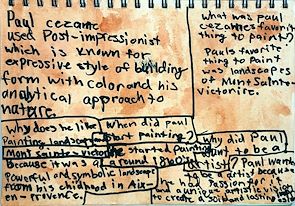 Paul cezanne
used Post-impressionist
which is known for
expressive style of building
form with color and his
analytical approach to
nature.
what was paul
cezannes favorite
thing to paint?
Pauls favorite
thing to Paint
was landscapes
of Mont Sainte-
victoire.
Why does he like
Painting landscape
Mont Sainte-victoire
because it was a
powerful and symbolic landscape
from his childhood in Aix-
en-provence.
when did paul
start painting?
he started painting
around 1860
why did Paul
want to be a
artist? Paul wanted
to be a artist because
he had Passion for it
and a unique artistic vision
to create a solid and lasting